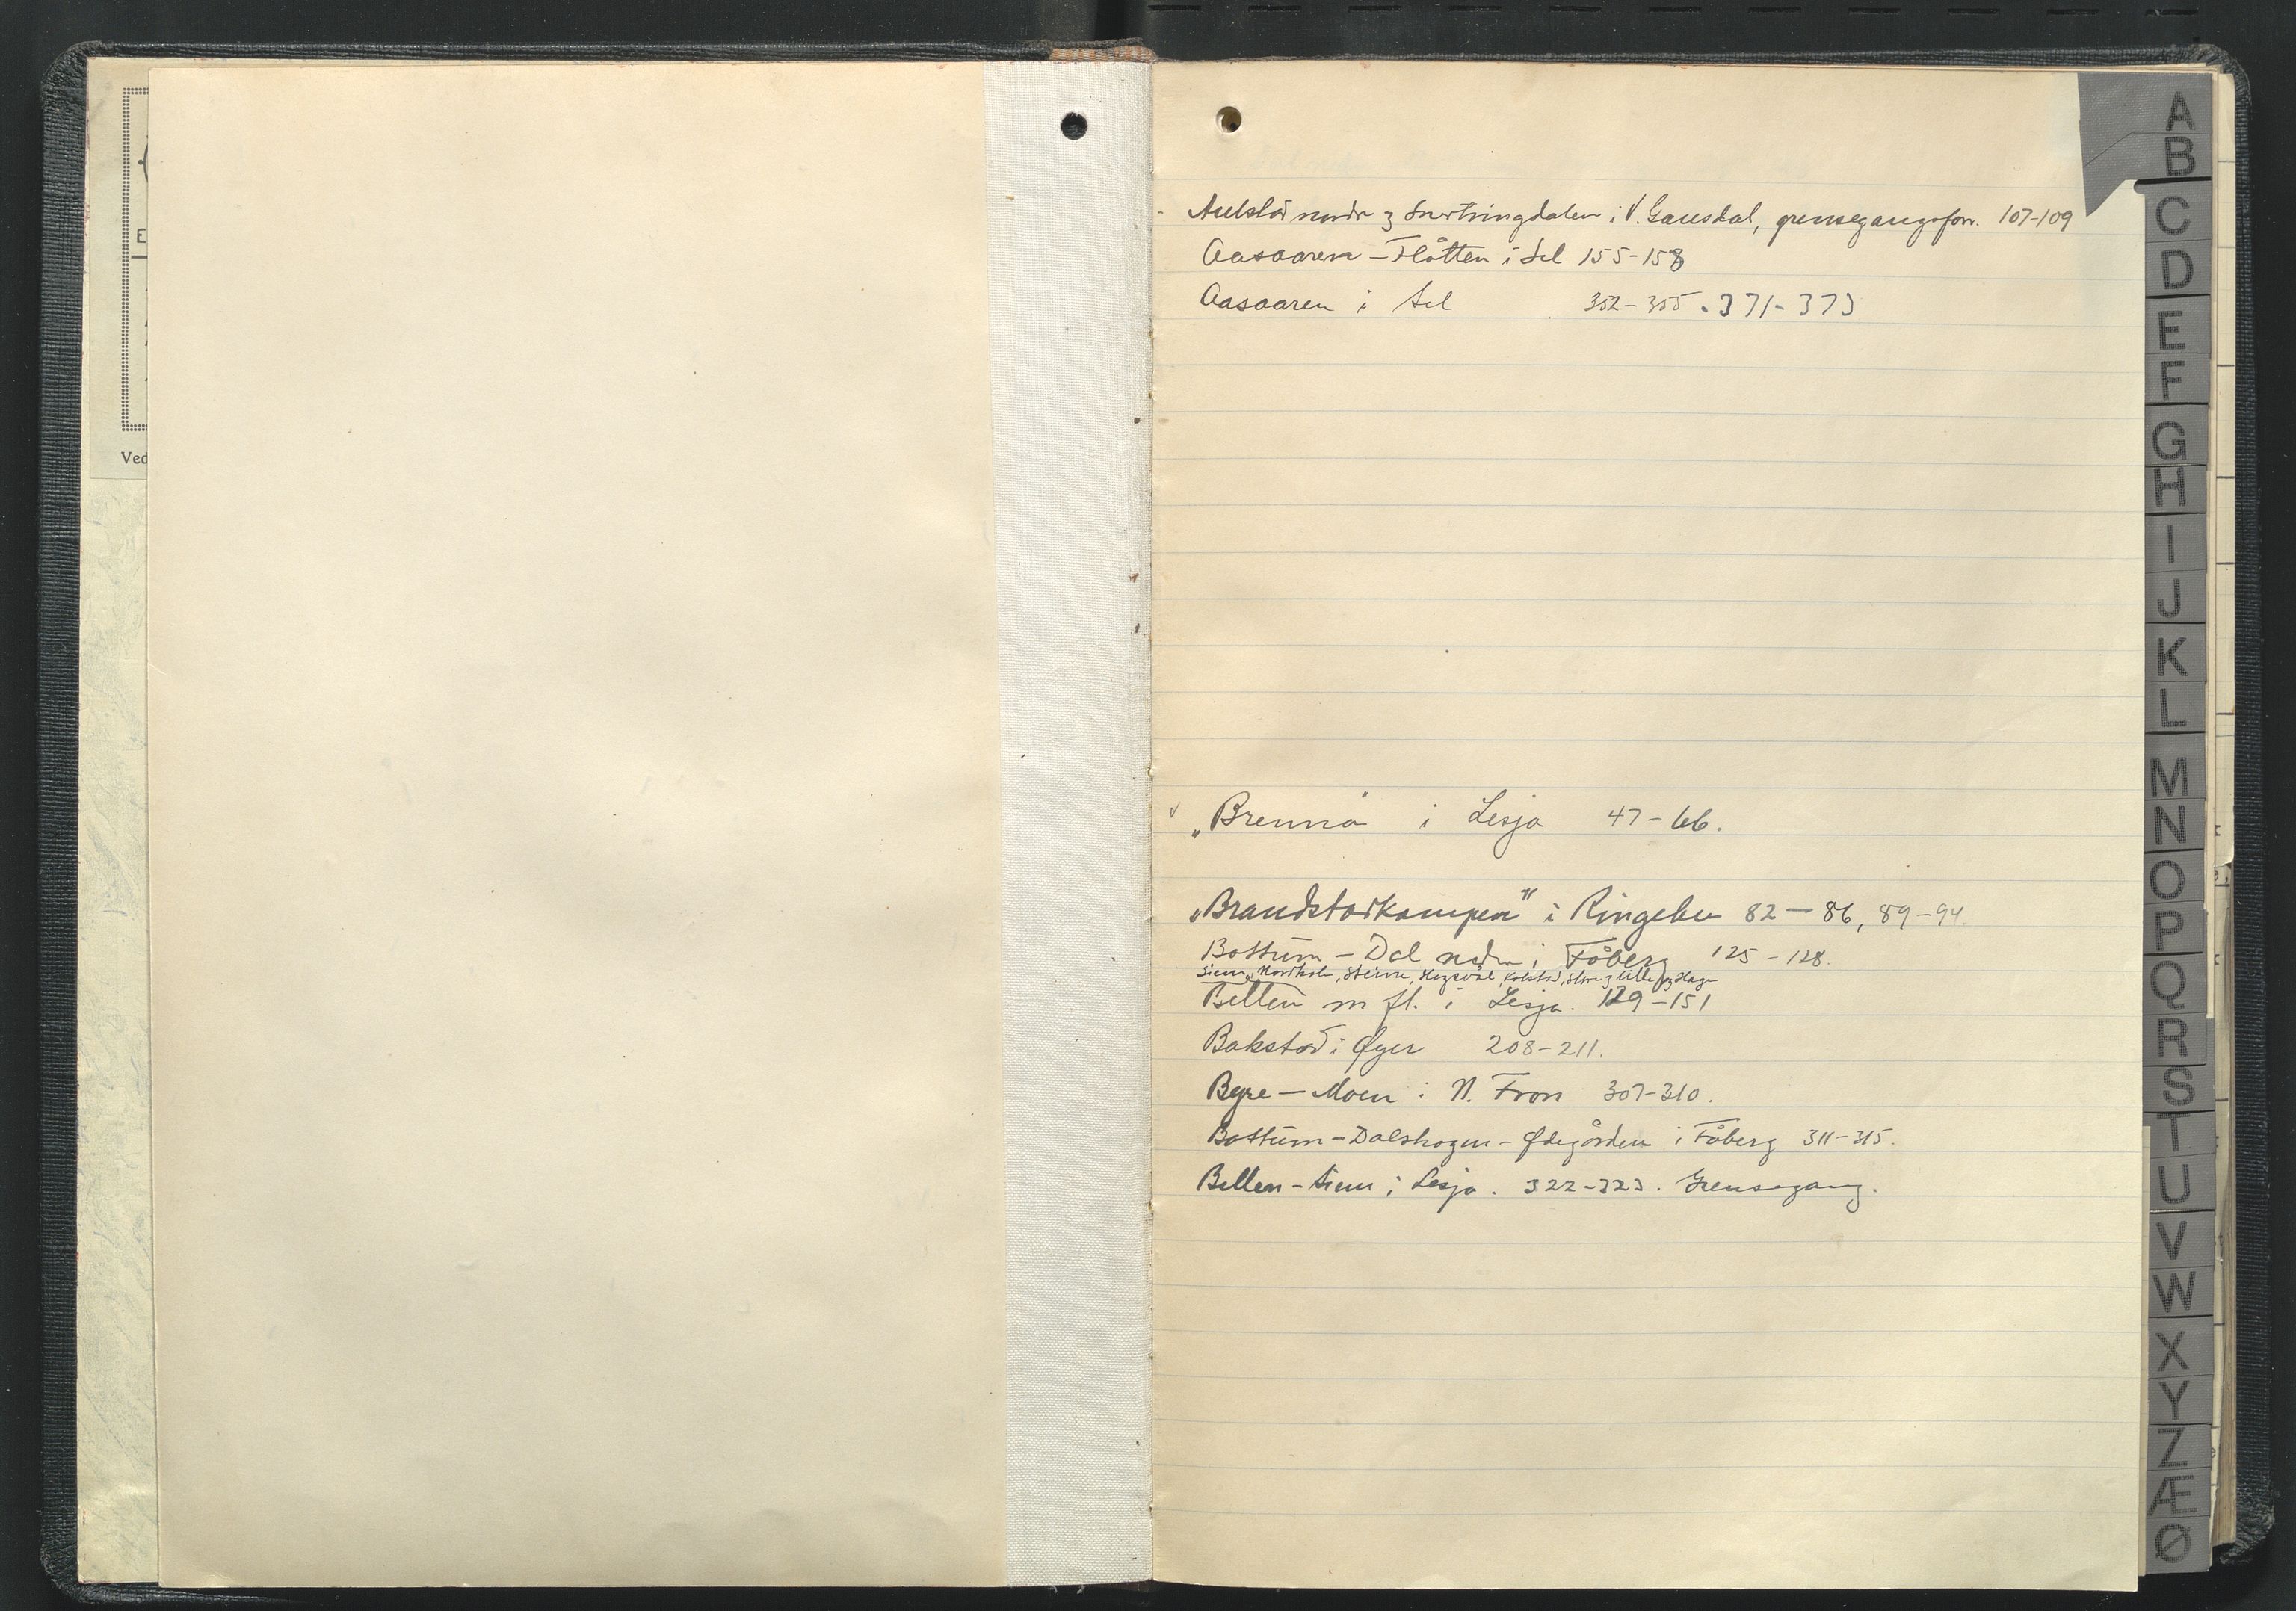 E
Ved
Aulstad nordre og Snertingdalen i V. Gausdal, grensegangsforr. 107-109
Aasaaren – Flåtten i Sel 155-158
Aasaaren i Sel 352-355 . 371-373
„Brenna" i Lesja 47-66.
„Brandstadkampen" i Ringebu 82-86, 89-94.
Bottum – Dal nedre i Fåberg 125-128.
Siem, Nordhole, Steine, Kolstad, Store og Lille og Hage
Bellen m fl. i Lesja. 129-151
Bakstad i Øyer 208-211.
Byre – Moen i N. Fron 307-310.
Bottum – Dalshagen – Ødegården i Fåberg 311-315.
Bellen – Siem i Lesja. 322-323. Grensegang.
A
B
C
D
E
F
G
H
I
J
K
L
M
N
O
P
Q
R
S
T
U
V
W
X
Y
Z
Æ
Ø